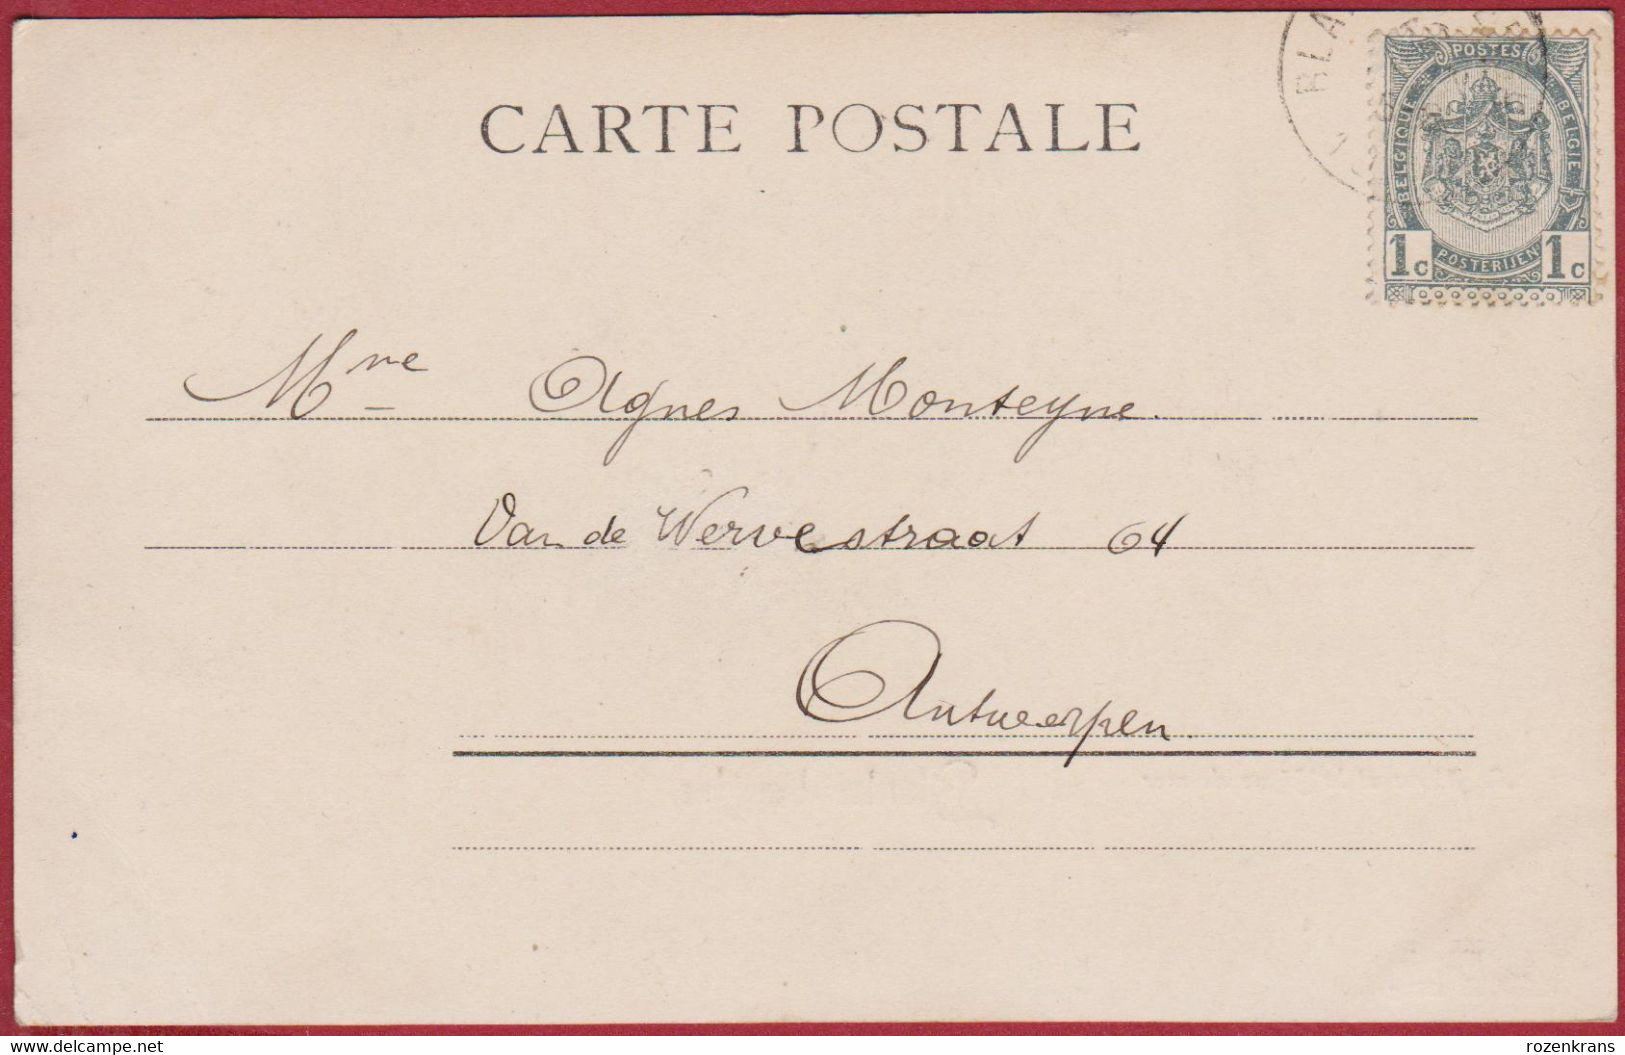 CARTE POSTALE
POSTES
BELGIQUE
BELGIE
POSTERIJEN
1c 1c
Mme Agnes Monteyne.
Van de Wervestraat 64
Antwerpen.
delcampe.net
rozenkrans